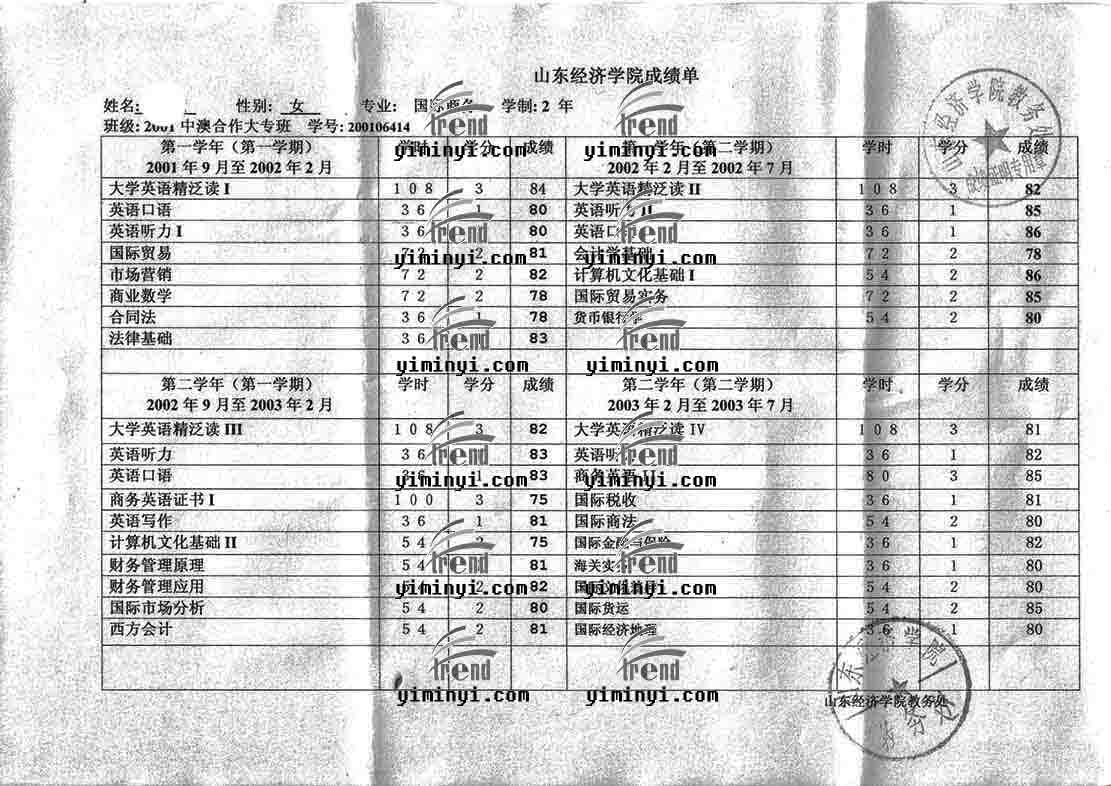 山东经济学院成绩单
姓名: 性别: 女 专业: 国际商务 学制: 2 年
班级: 2001 中澳合作大专班 学号: 200106414
第一学年(第一学期) 学时 学分 成绩 第一学年(第二学期) 学时 学分 成绩
2001 年 9 月至 2002 年 2 月 2002 年 2 月至 2002 年 7 月
大学英语精泛读 I 108 3 84 大学英语精泛读 II 108 3 82
英语口语 36 1 80 英语听力 II 36 1 85
英语听力 I 36 1 80 英语口语 36 1 86
国际贸易 72 2 81 会计学基础 72 2 78
市场营销 72 2 82 计算机文化基础 I 54 2 86
商业数学 72 2 78 国际贸易实务 72 2 85
合同法 36 1 78 货币银行学 54 2 80
法律基础 36 83
第二学年(第一学期) 学时 学分 成绩 第二学年(第二学期) 学时 学分 成绩
2002 年 9 月至 2003 年 2 月 2003 年 2 月至 2003 年 7 月
大学英语精泛读 III 108 3 82 大学英语精泛读 IV 108 3 81
英语听力 36 83 英语听 36 1 82
英语口语 36 1 83 商务英语 II 80 3 85
商务英语证书 I 100 3 75 国际税收 36 1 81
英语写作 36 1 81 国际商法 54 2 80
计算机文化基础 II 54 2 75 国际金融与保险 36 1 82
财务管理原理 54 81 海关实务 36 1 80
财务管理应用 54 2 82 国际 54 2 80
国际市场分析 54 2 80 国际货运 54 2 85
西方会计 54 2 81 国际经济地理 36 1 80
山东经济学院教务处
山东经济学院教务处
成绩证明专用章
trend
yiminyi.com
trend
yiminyi.com
trend
yiminyi.com
trend
yiminyi.com
trend
yiminyi.com
trend
yiminyi.com
trend
yiminyi.com
trend
yiminyi.com
trend
yiminyi.com
trend
yiminyi.com
trend
yiminyi.com
trend
yiminyi.com